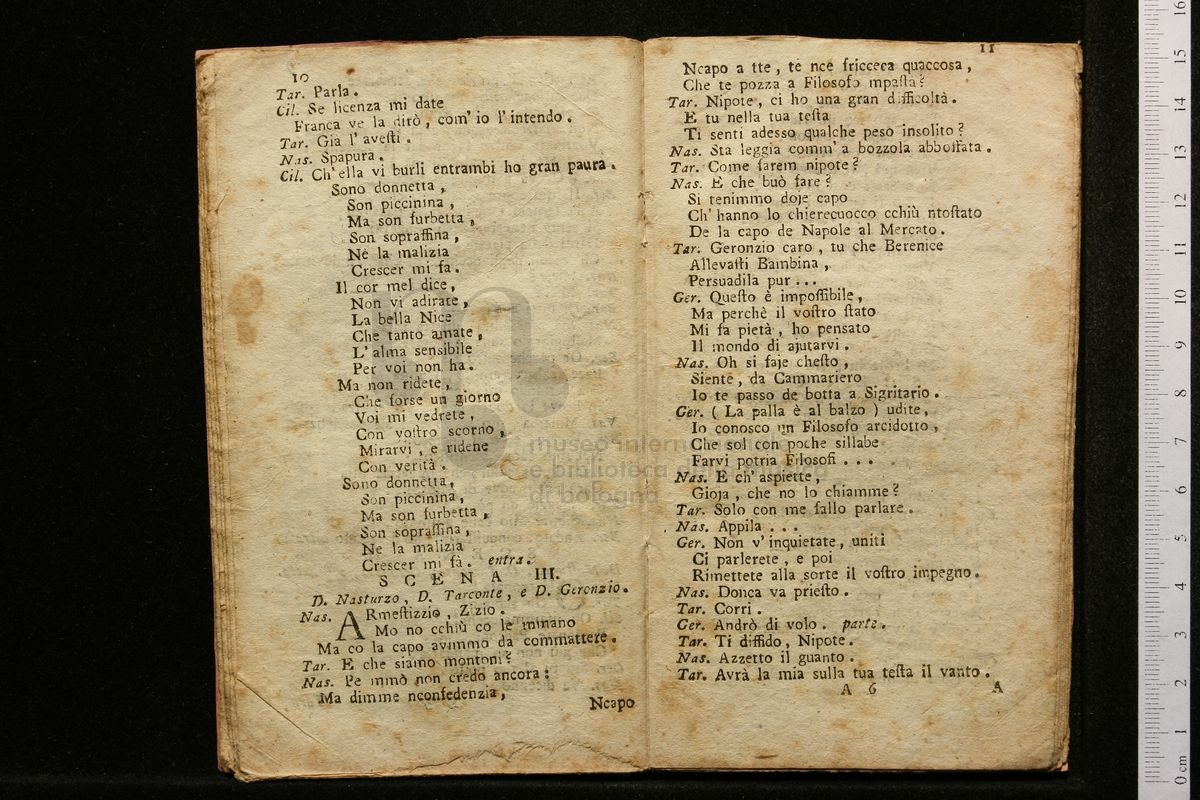 10
Tar. Parla.
Cil. Se licenza mi date
Franca ve la dirò, com' io l' intendo.
Tar. Già l' avesti.
Nas. Spapura.
Cil. Ch' ella vi burli entrambi ho gran paura.
Sono donnetta,
Son piccinina,
Ma son furbetta,
Son sopraffina,
Nè la malizia
Crescer mi fa.
Il cor mel dice,
Non vi adirate,
La bella Nice
Che tanto amate,
L' alma sensibile
Per voi non ha.
Ma non ridete,
Che forse un giorno
Voi mi vedrete,
Con vostro scorno,
Mirarvi, e ridene
Con verità.
Sono donnetta,
Son piccinina,
Ma son furbetta,
Son sopraffina,
Ne la malizia
Crescer mi fà. entra.
SCENA III.
D. Nasturzo, D. Tarconte, e D. Geronzio.
Nas. ARmestizzio, Zizio.
Mo no cchiù co le minano
Ma co la capo avimmo da commattere.
Tar. E che siamo montoni?
Nas. Pe mmò non credo ancora:
Ma dimme nconfedenzia,
Ncapo
11
Ncapo a tte, te nce friccera quaccosa,
Che te pozza a Filosofo mpasta?
Tar. Nipote, ci ho una gran difficoltà.
E tu nella tua testa
Ti senti adesso qualche peso insolito?
Nas. Sta leggia comm' a bozzola abbottata.
Tar. Come farem nipote?
Nas. E che buò fare?
Si tenimmo doje capo
Ch' hanno lo chierecuocco cchiù ntostato
De la capo de Napole al Mercato.
Tar. Geronzio caro, tu che Berenice
Allevasti Bambina,
Persuadila pur...
Ger. Questo è impossibile,
Ma perchè il vostro stato
Mi fa pietà, ho pensato
Il mondo di ajutarvi.
Nas. Oh si faje chesto,
Siente, da Cammariero
Io te passo de botta a Sigritario.
Ger. ( La palla è al balzo ) udite,
Io conosco un Filosofo arcidotto,
Che sol con poche sillabe
Farvi potria Filosofi...
Nas. E ch' aspiette,
Gioja, che no lo chiamme?
Tar. Solo con me fallo parlare.
Nas. Appila...
Ger. Non v' inquietate, uniti
Ci parlerete, e poi
Rimettete alla sorte il vostro impegno.
Nas. Donca va priesto.
Tar. Corri.
Ger. Andrò di volo. parte.
Tar. Ti diffido, Nipote.
Nas. Azzetto il guanto.
Tar. Avrà la mia sulla tua testa il vanto.
A 6 A
museo internazionale
e biblioteca della musica
di bologna
0 cm 1 2 3 4 5 6 7 8 9 10 11 12 13 14 15 16